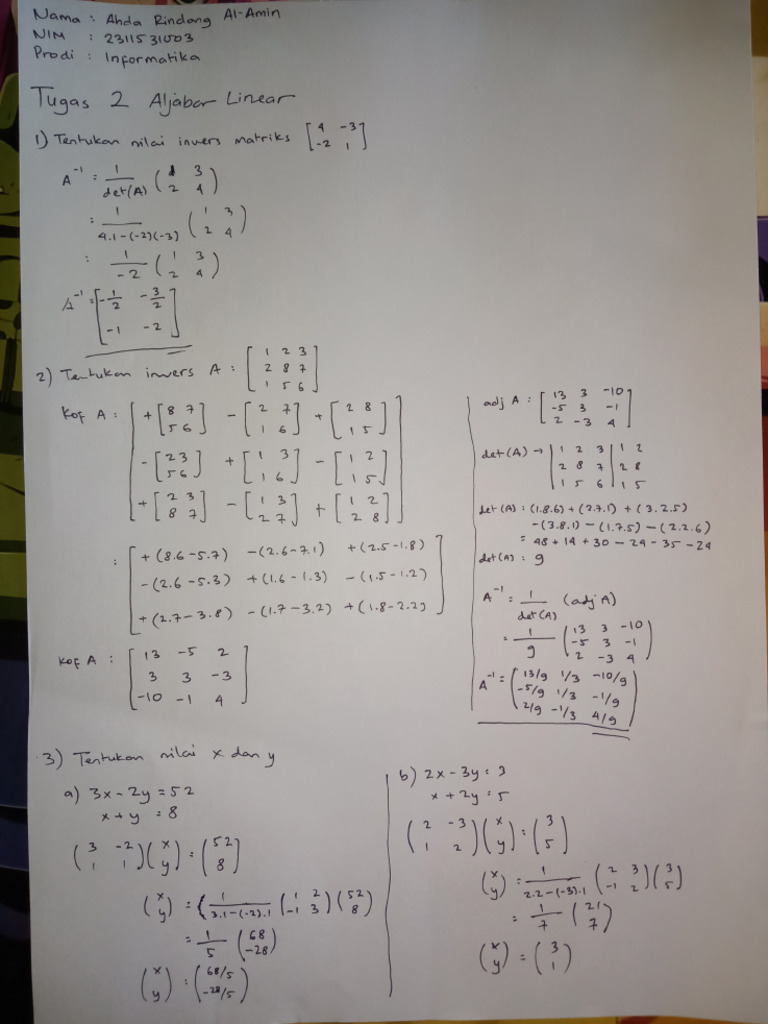 Nama : Ahda Rindang Al-Amin
NIM : 2311531003
Prodi : Informatika
Tugas 2 Aljabar Linear
1) Tentukan nilai invers matriks [4 -3
-2 1]
A⁻¹ = 1/det(A) (1 3
2 4)
= 1/4.1-(-2)(-3) (1 3
2 4)
= 1/-2 (1 3
2 4)
A⁻¹ = [-1/2 -3/2
-1 -2]
2) Tentukan invers A : [1 2 3
2 8 7
1 5 6]
Kof A : [+[8 7
5 6] -[2 7
1 6] +[2 8
1 5]
-[2 3
5 6] +[1 3
1 6] -[1 2
1 5]
+[2 3
8 7] -[1 3
2 7] +[1 2
2 8]]
: [+(8.6-5.7) -(2.6-7.1) +(2.5-1.8)
-(2.6-5.3) +(1.6-1.3) -(1.5-1.2)
+(2.7-3.8) -(1.7-3.2) +(1.8-2.2)]
Kof A : [13 -5 2
3 3 -3
-10 -1 4]
adj A : [13 3 -10
-5 3 -1
2 -3 4]
det(A) → |1 2 3| 1 2
|2 8 7| 2 8
|1 5 6| 1 5
det(A) : (1.8.6)+(2.7.1)+(3.2.5)
-(3.8.1)-(1.7.5)-(2.2.6)
= 48+14+30-24-35-24
det(A) : 9
A⁻¹ = 1/det(A) (adj A)
= 1/9 (13 3 -10
-5 3 -1
2 -3 4)
A⁻¹ = (13/9 1/3 -10/9
-5/9 1/3 -1/9
2/9 -1/3 4/9)
3) Tentukan nilai x dan y
a) 3x-2y = 52
x+y = 8
(3 -2
1 1)(x
y) = (52
8)
(x
y) = (1/3.1-(-2).1 (1 2
-1 3)(52
8)
= 1/5 (68
-28)
(x
y) = (68/5
-28/5)
b) 2x-3y = 3
x+2y = 5
(2 -3
1 2)(x
y) = (3
5)
(x
y) = 1/2.2-(-3).1 (2 3
-1 2)(3
5)
= 1/7 (21
7)
(x
y) = (3
1)